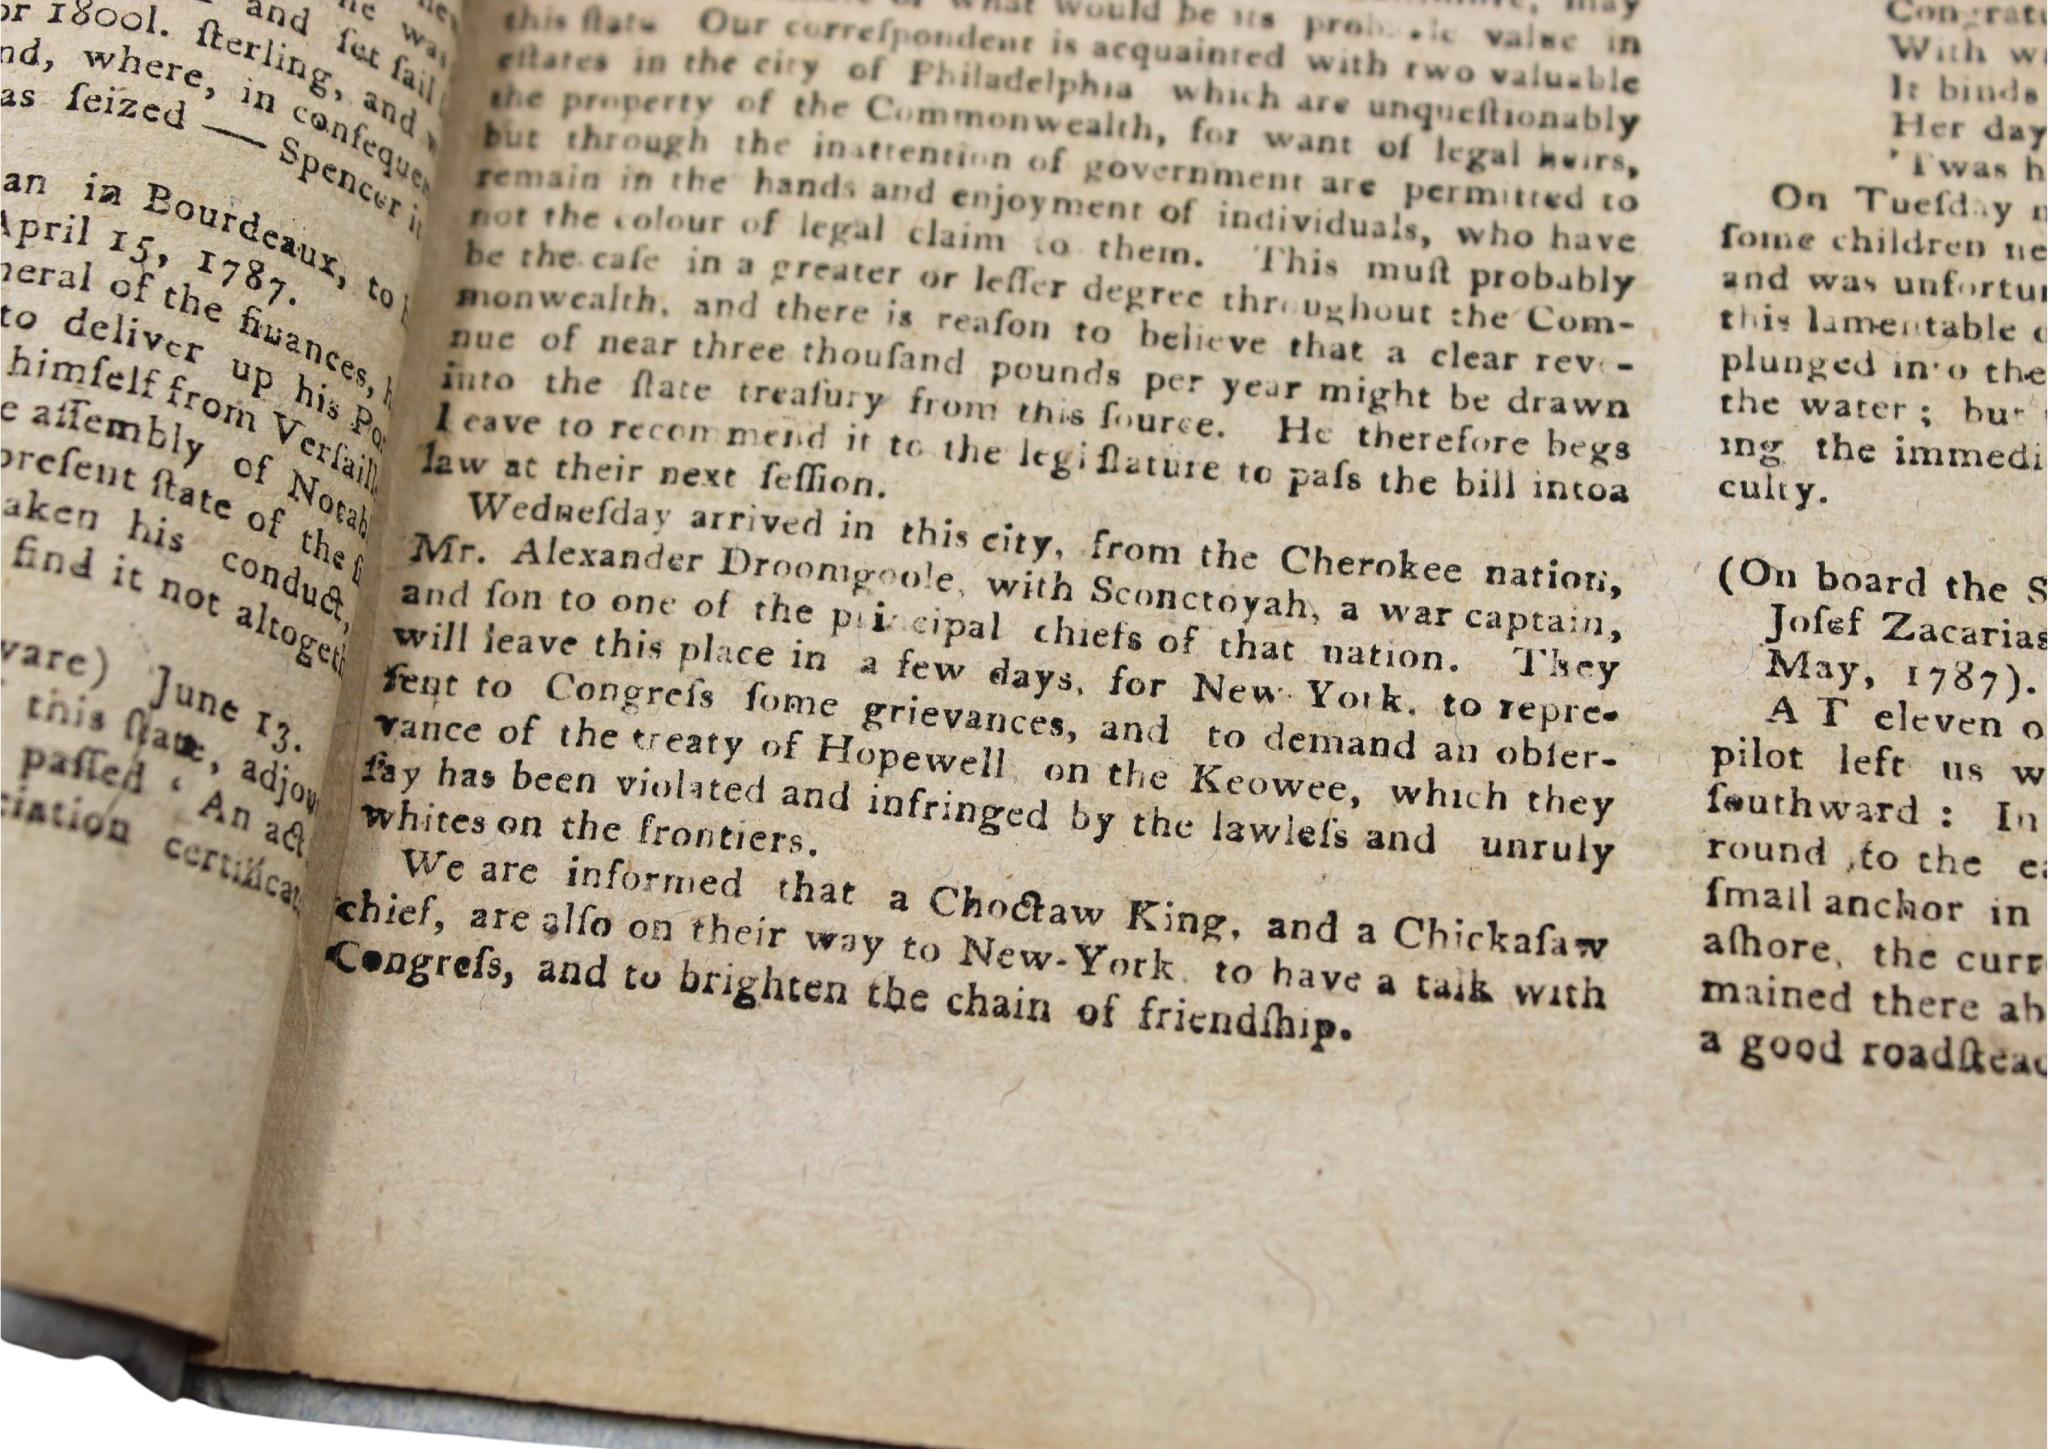 new
he was
and set sail
or 1800l. ſterling, and
nd, where, in conſequen
as ſeized — Spencer i
an in Bourdeaux, to
April 15, 1787.
neral of the finances, h
to deliver up his Po
himſelf from Verſaill
e aſſembly of Notab
preſent ſtate of the f
aken his conduct,
find it not altoget
ware) June 13.
this ſtate, adjou
paſſed ‘ An act
ciation certificat
what would be its value in
this ſtate Our correſpondent is acquainted with two valuable
eſtates in the city of Philadelphia which are unqueſtionably
the property of the Commonwealth, for want of legal heirs,
but through the inattention of government are permitted to
remain in the hands and enjoyment of individuals, who have
not the colour of legal claim to them. This muſt probably
be the caſe in a greater or leſſer degree throughout the Com-
monwealth, and there is reaſon to believe that a clear reve-
nue of near three thouſand pounds per year might be drawn
into the ſtate treaſury from this ſource. He therefore begs
leave to recommend it to the legiſlature to paſs the bill intoa
law at their next ſeſſion.
Wedneſday arrived in this city, from the Cherokee nation,
Mr. Alexander Droomgoole, with Sconctoyah, a war captain,
and ſon to one of the principal chiefs of that nation. They
will leave this place in a few days, for New York, to repre-
ſent to Congreſs ſome grievances, and to demand an obſer-
vance of the treaty of Hopewell on the Keowee, which they
ſay has been violated and infringed by the lawleſs and unruly
whites on the frontiers.
We are informed that a Choctaw King, and a Chickaſaw
chief, are alſo on their way to New-York to have a talk with
Congreſs, and to brighten the chain of friendſhip.
Congratu
With w
It binds
Her day
'Twas h
On Tueſday
ſome children ne
and was unfortun
this lamentable
plunged into the
the water ; but
ing the immedi
culty.
(On board the S
Joſef Zacarias
May, 1787).
A T eleven o
pilot left us w
ſouthward : In
round to the ea
ſmall anchor in
aſhore, the curr
mained there ab
a good roadſtead